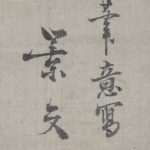 筆意寫
景文